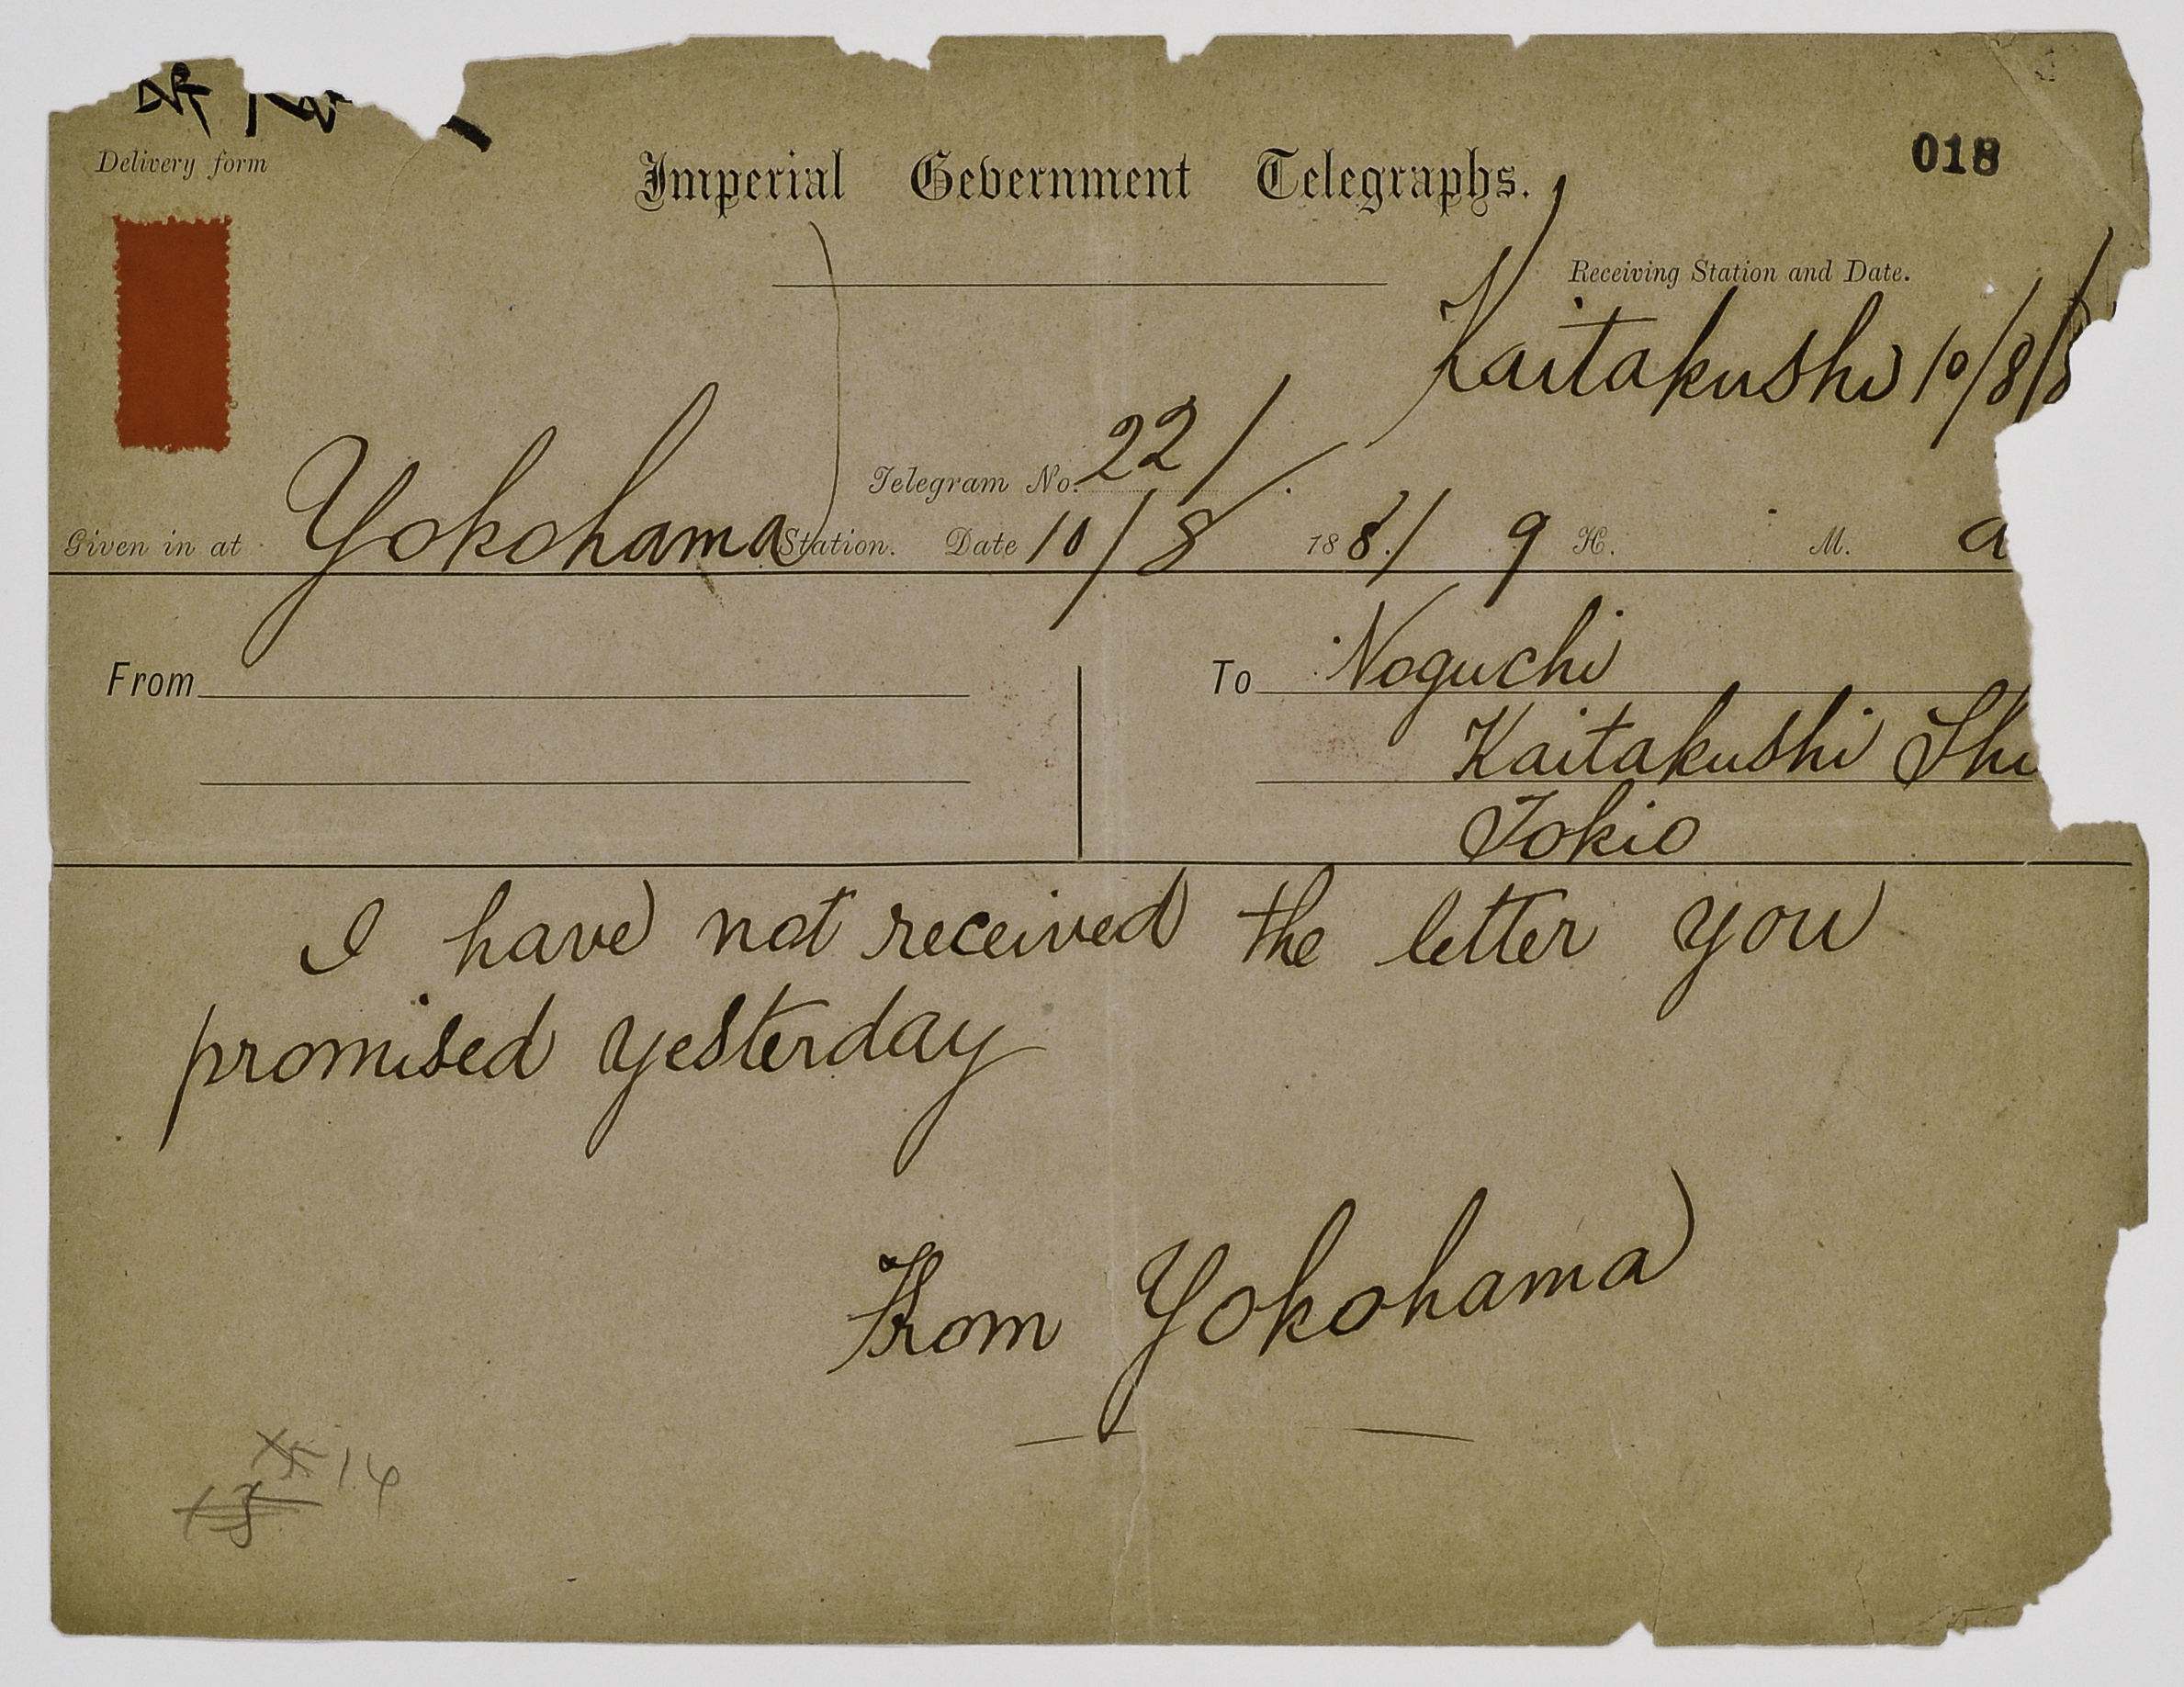 018
Delivery form
Imperial Gevernment Telegraphs.
Receiving Station and Date.
Kaitakushi 10/8/8
Telegram No. 221
Given in at Yokohama Station. Date 10/8 1881 9 H. M. a
From
To Noguchi
Kaitakushi Shi
Tokio
I have not received the letter you
promised yesterday
From Yokohama
14